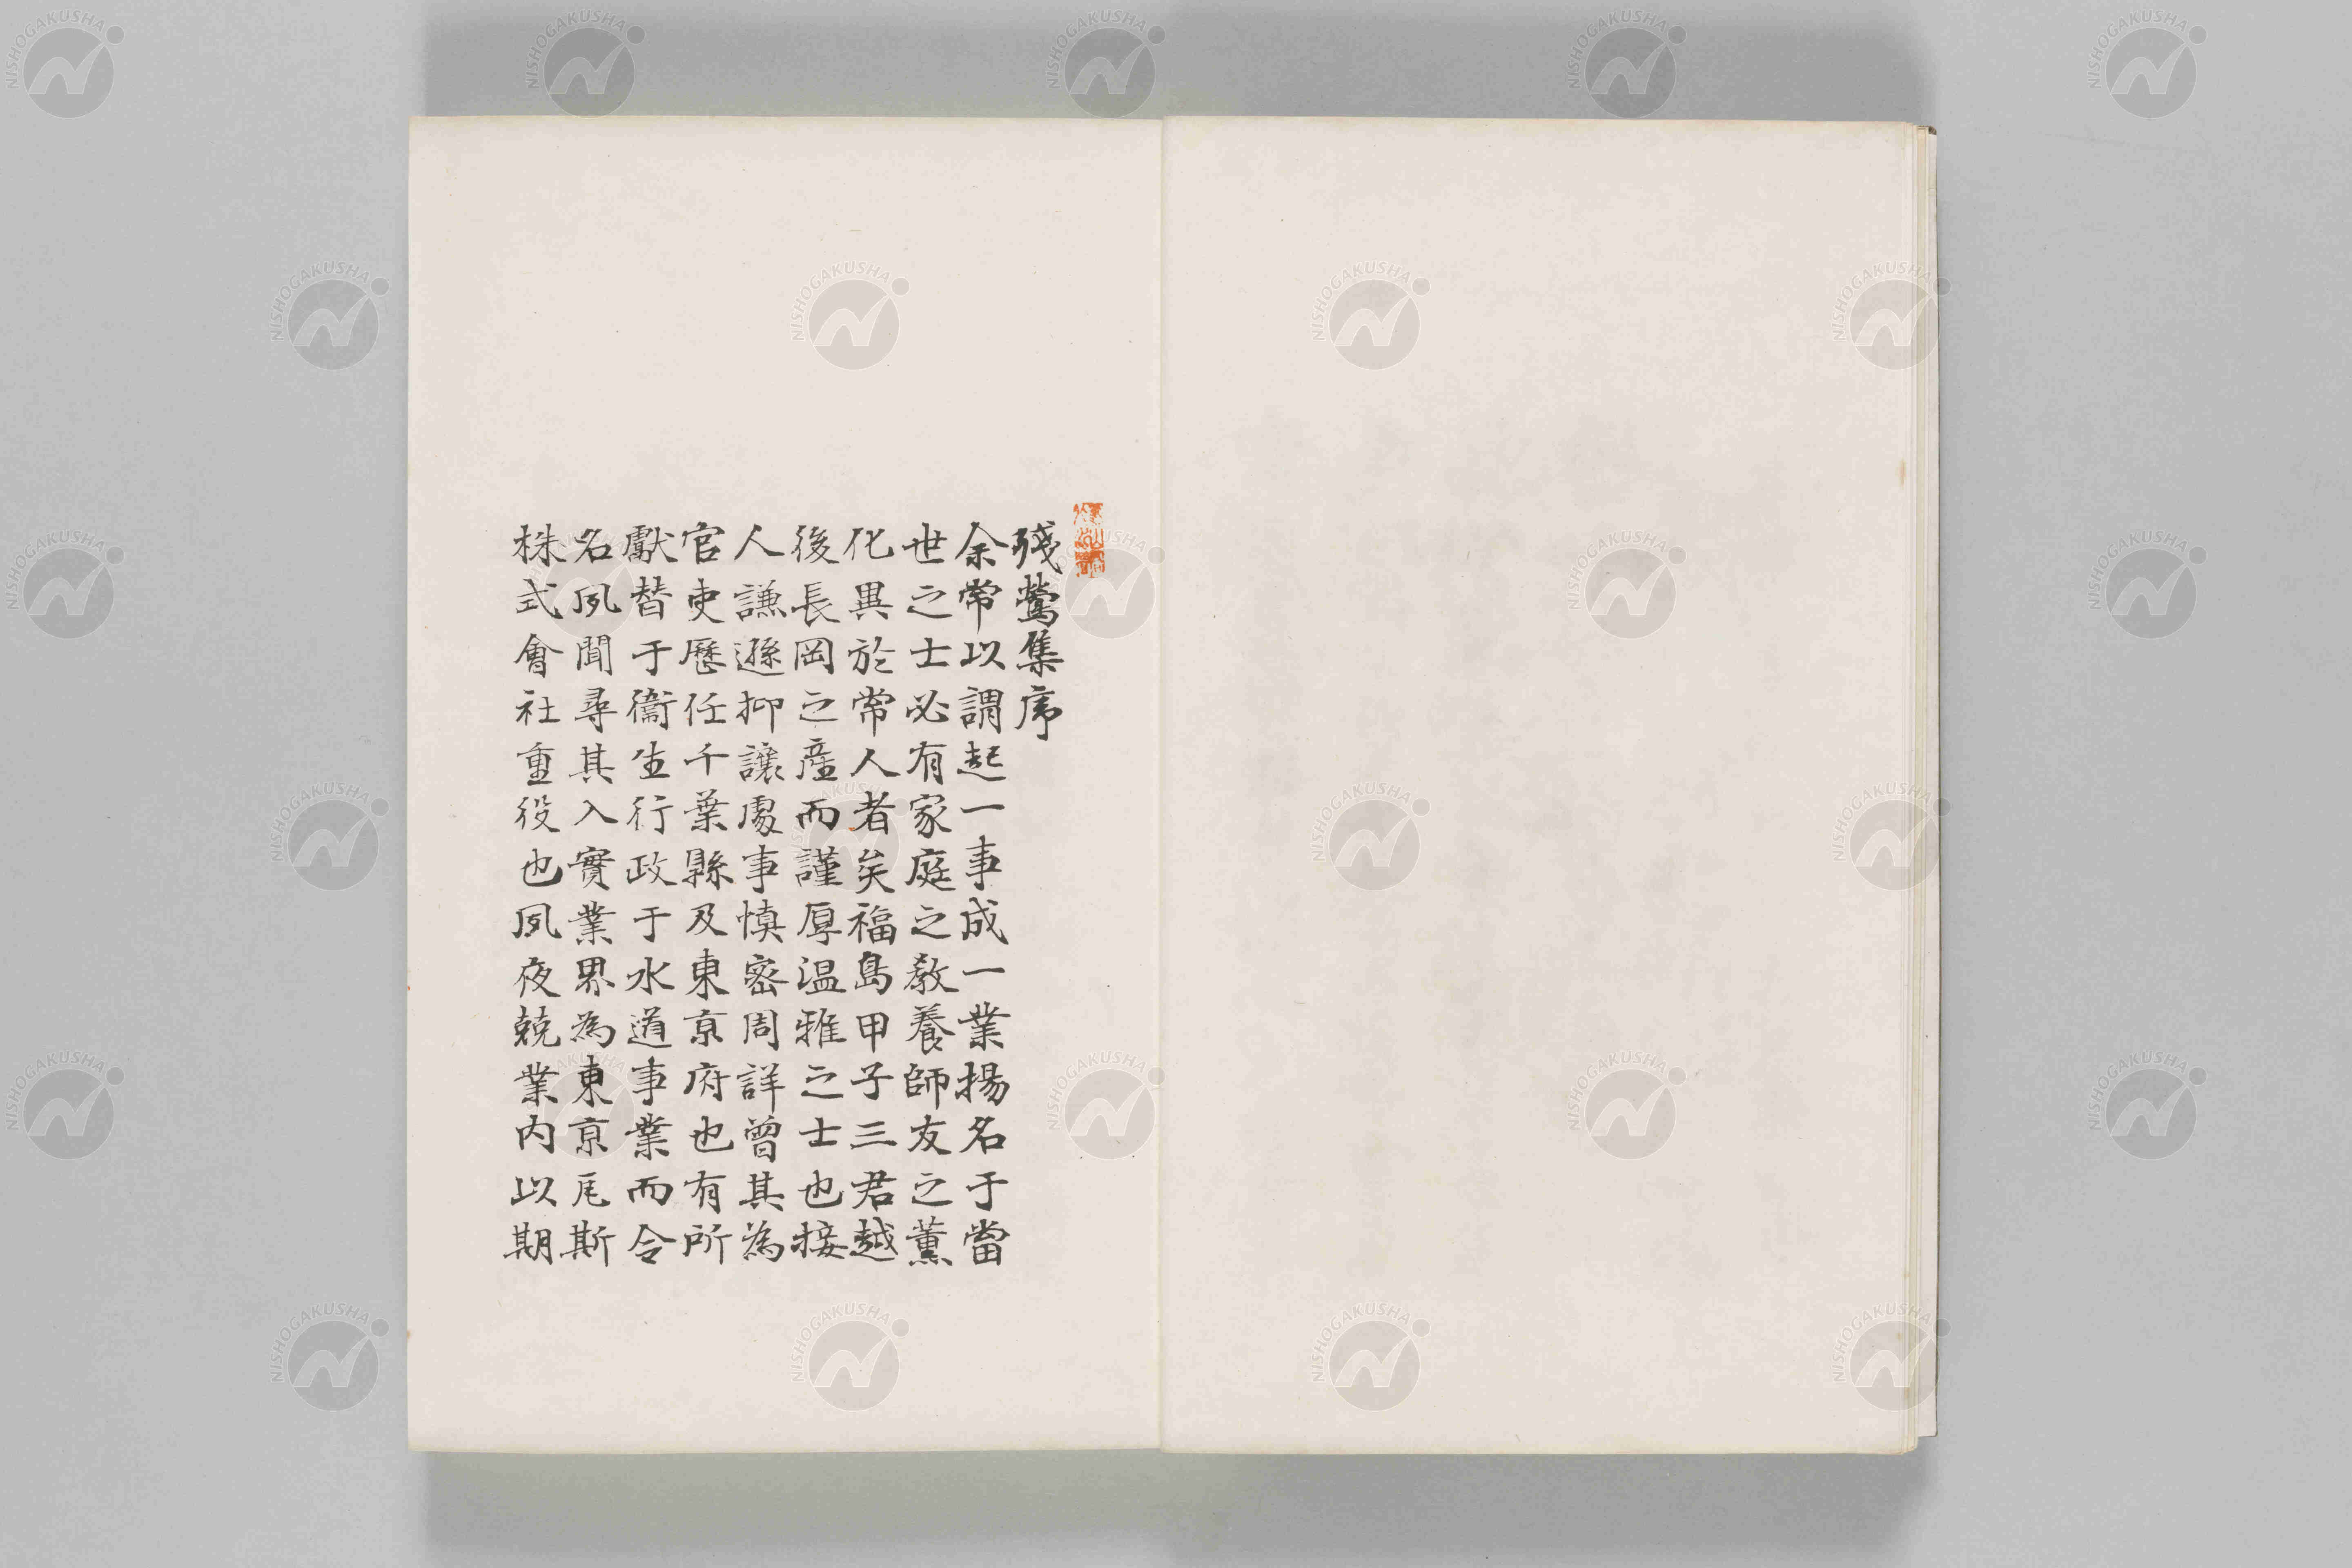 殘鶯集序
余常以謂起一事成一業揚名于當
世之士必有家庭之教養師友之薰
化異於常人者矣福島甲子三君越
後長岡之產而謹厚溫雅之士也接
人謙遜抑讓處事慎密周詳曾其為
官吏歷任千葉縣及東京府也有所
獻替于衞生行政于水道事業而令
名夙聞尋其入實業界為東京瓦斯
株式會社重役也夙夜兢業內以期
NISHOGAKUSHA